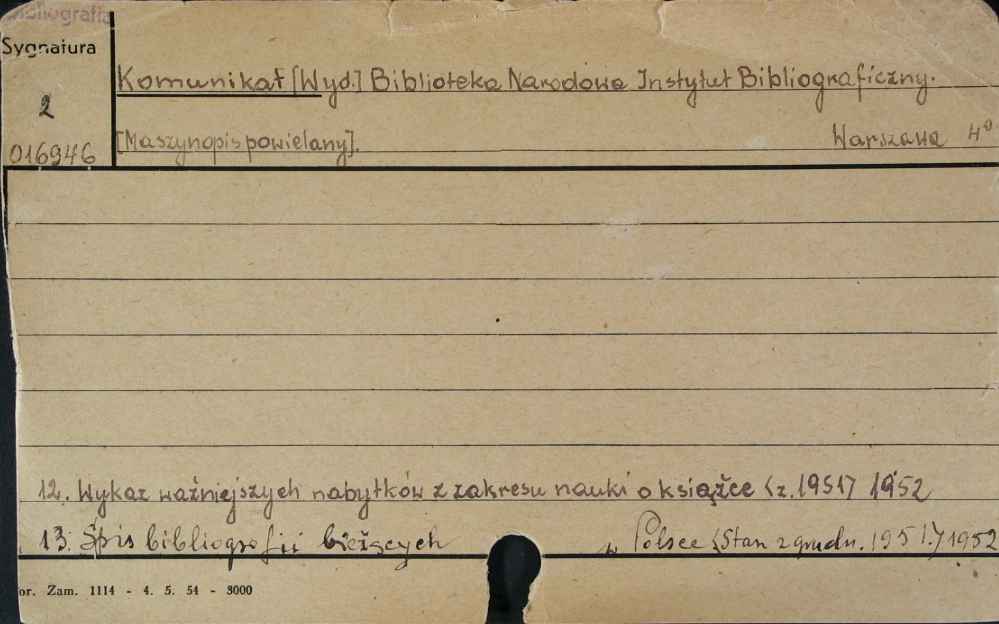 Bibliografia
Sygnatura
2
016946
Komunikat [Wyd.] Biblioteka Narodowa Instytut Bibliograficzny.
[Maszynopis powielany]. Warszawa 4º
12. Wykaz ważniejszych nabytków z zakresu nauki o książce <z. 1951> 1952
13. Spis bibliografii bieżących w Polsce <Stan z grudn. 1951.> 1952
or. Zam. 1114 - 4. 5. 54 - 3000